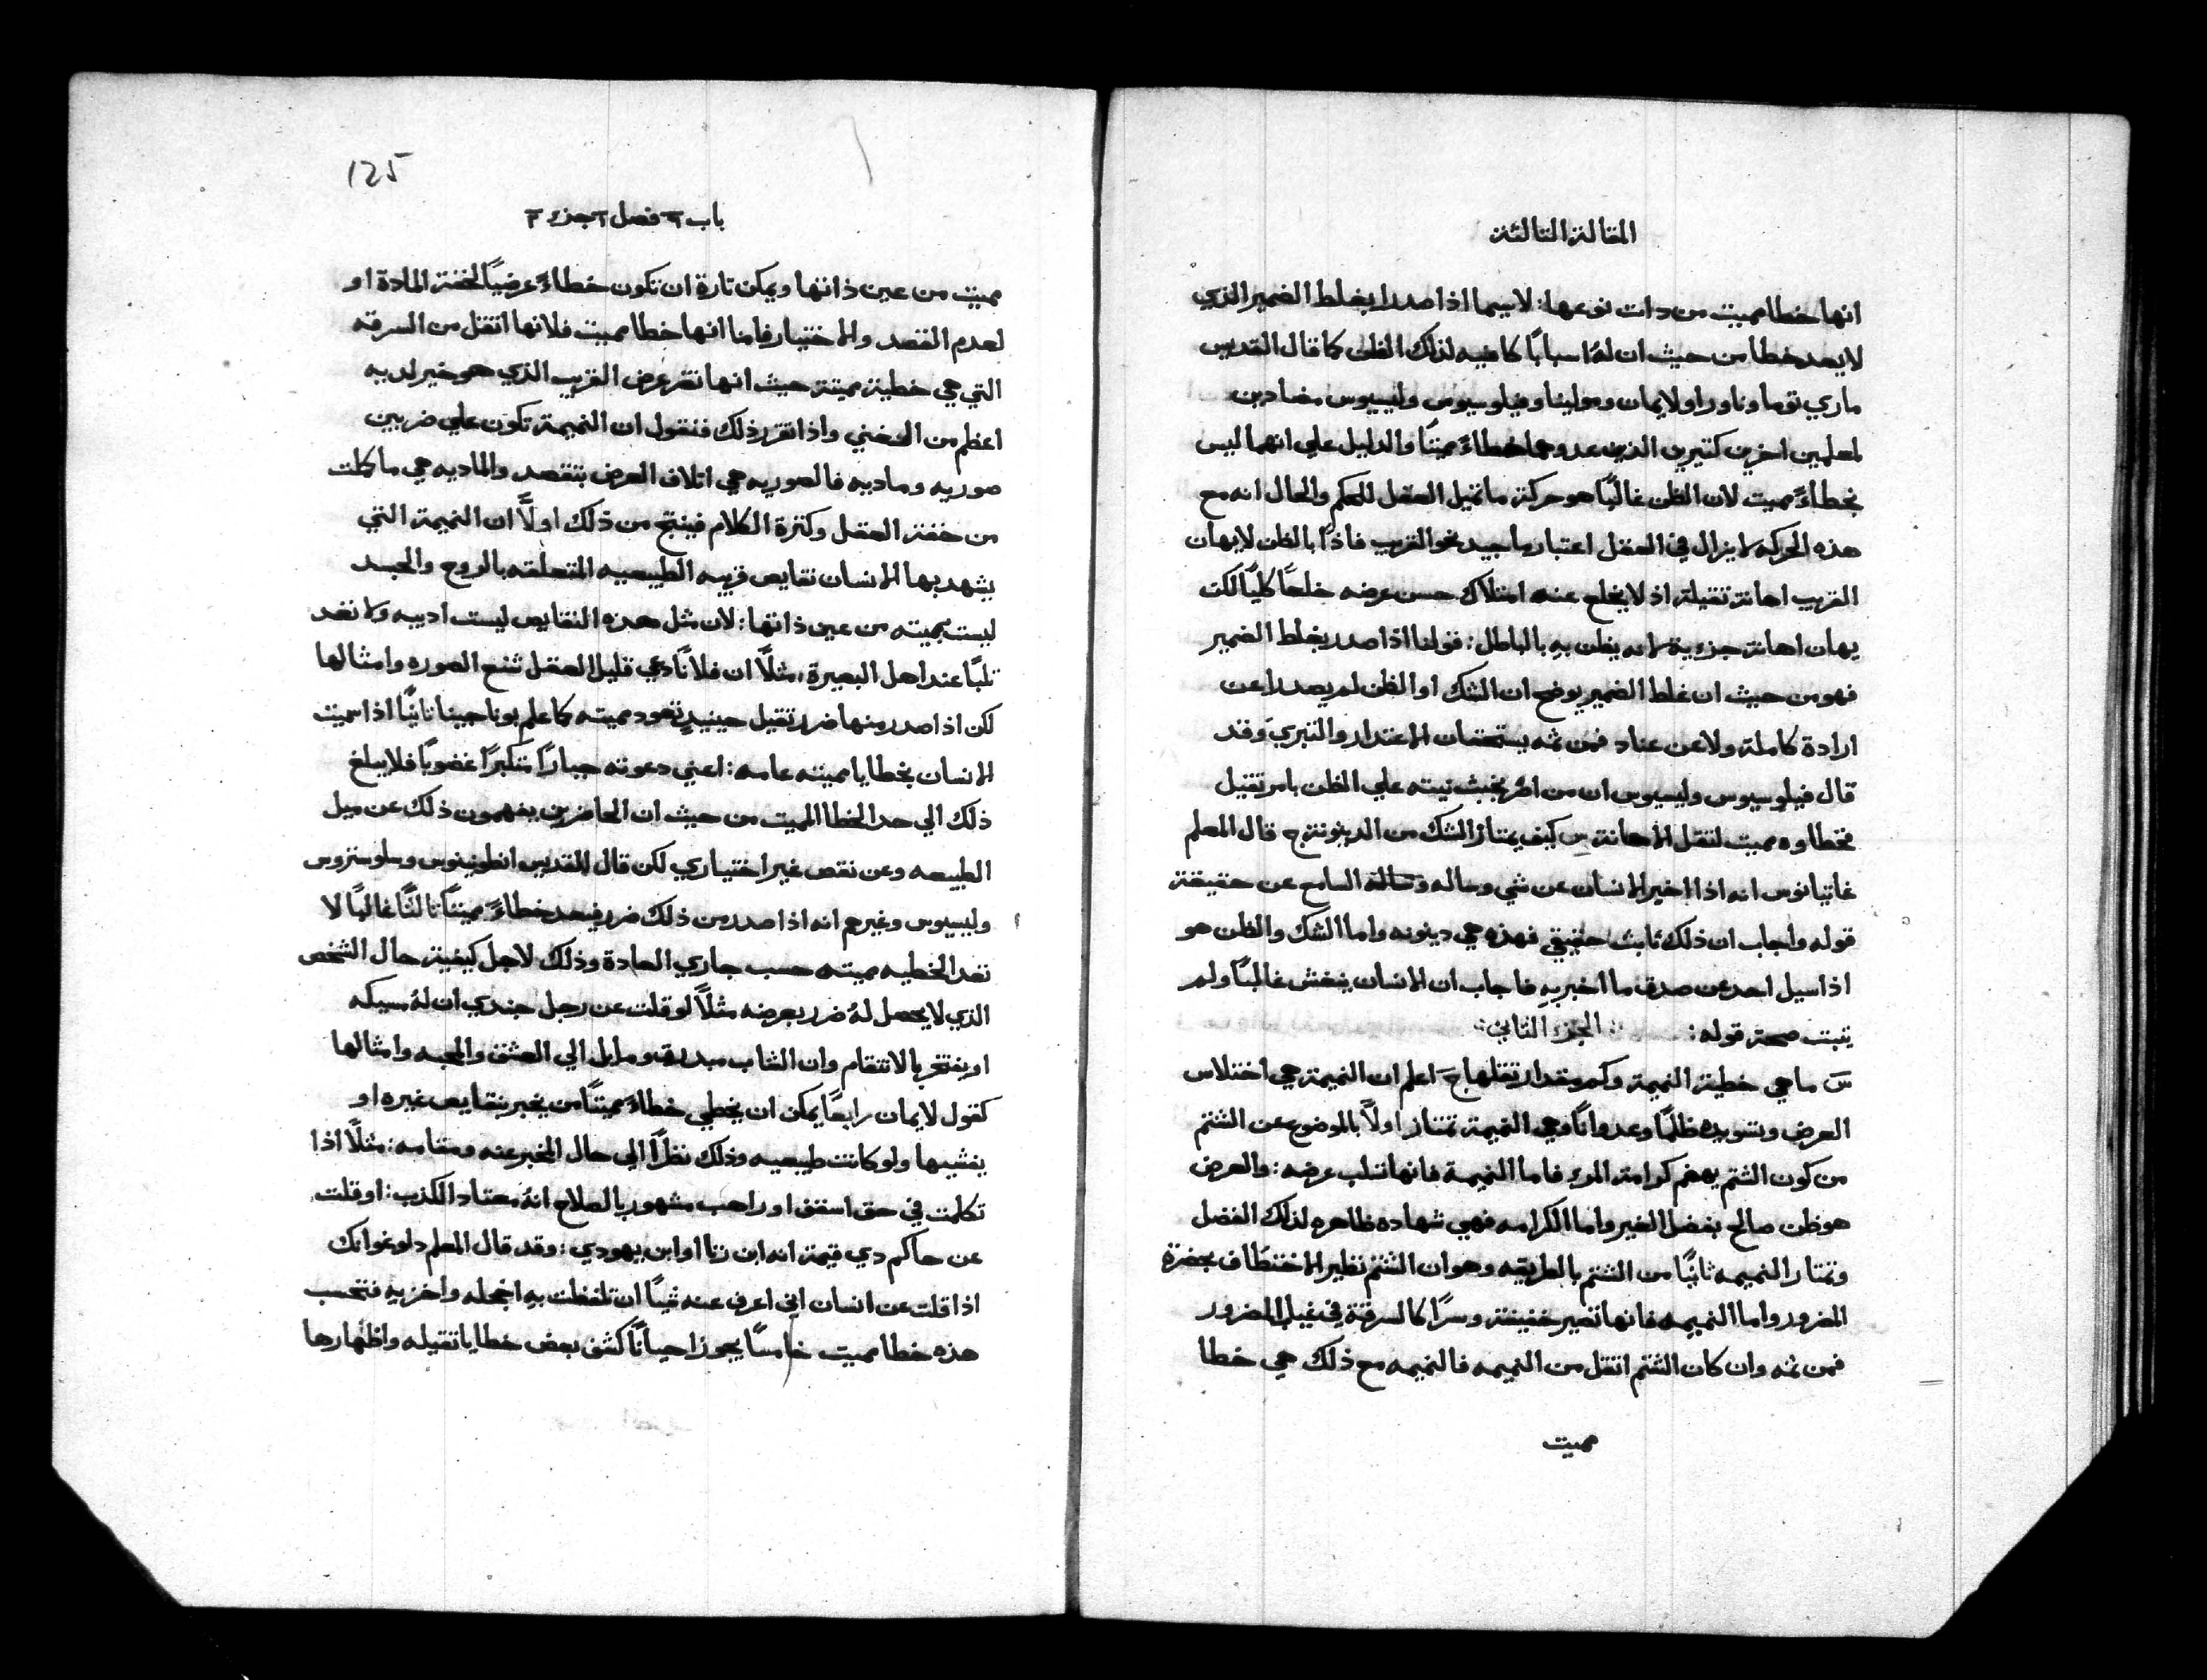 المقالة الثالثة
انها خطا مميت من دات نوعها: لاسيما اذا صدرا بغلط الضمير الذي
لا يعد خطا من حيث ان لهُ اسبابًا كافيه لذلك الظن كما قال القديس
ماري توما وناورا ولايمان ومولينا وفيلوسيوس وليسيوس مضادين
لمعلمين اخرين كتيرين الذين عدوهما خطاءً مميتًا والدليل علي انهما ليس
بخطاءً مميت لان الظن غالبًا هو حركة ما تميل العقل للحكم والحال انه مع
هذه الحركه لا يزال في العقل اعتبار ما جيد نحو القريب فاذًا بالظن لا يهان
القريب اهانة تقيلة اذ لا يخلع عنه امتلاك حسن عرضه خلعًا كليًا لكن
يهان اهانة جزءية لانه يظن بهِ بالباطل: قولنا اذا صدر بغلط الضمير
فهو من حيث ان غلط الضمير يوضح ان الشك او الظن لم يصدرا عن
ارادة كاملة ولا عن عناد فمن ثمه يستحقان الاعتدار والتبري وقد
قال فيلوسيوس وليسيوس ان من اصر بخبث نيته علي الظن بامر تقيل
فخطاوه مميت لتقل الاهانة س كيف يمتاز الشك من الدينونة ج قال المعلم
غاتيانوس انه اذا اخبر الانسان عن شي وساله وساله السامع عن حقيقة
قوله واجاب ان ذلك ثابت حقيقي فهذه هي دينونه واما الشك والظن هو
اذا سيل احد عن صدق ما اخبر بهِ فاجاب ان الانسان ينغش غالبًا ولم
يتبت صحة قوله: الجزء الثاني:
سَ ما هي خطية النميمة وكم مقدار تقلها جَ اعلم ان النميمة هي اختلاس
العرض وتسويده ظلمًا وعدوانًا وهي النميمة تمتاز اولًا بالموضوع عن الشتم
من كون الشتم يهضم كرامة المرء فاما النميمة فانها تتلب عرضه: والعرض
هو ظن صالح بفضل الغير واما الكرامه فهي شهاده ظاهره لذلك الفضل
وتمتاز النميمه ثانيًا من الشتم بالطريقه وهو ان الشتم نظير الاختطاف بحضرة
المضرور واما النميمه فانها تصير خفيفة وسرًا كالسرقة في غياب المضرور
فمن ثمه وان كان الشتم اتقل من النميمه فالنميمه مع ذلك هي خطا
مميت
125
باب ٩ فصل ٢ جزء ٣
مميت من عين ذاتها ويمكن تارة ان تكون خطاءً عرضيًا لخفة المادة او
لعدم القصد والاختيار فاما انها خطا مميت فلانها اتقل من السرقه
التي هي خطية مميتة حيث انها تضر عرض القريب الذي هو خير لديه
اعظم من الغني واذا تقرر ذلك فنقول ان النميمة تكون علي ضربين
صوريه وماديه فالصوريه هي اتلاف العرض بتقصد والماديه هي ما كانت
من خفة العقل وكترة الكلام فينتج من ذلك اولًا ان النميمة التي
يشهد بها الانسان نقايص قريبه الطبيعيه المتعلقه بالروح والجسد
ليست بمميته من عين ذاتها: لان مثل هذه النقايص ليست ادبيه ولا تعد
تلبًا عند اهل البصيرة: مثلًا ان فلانًا دعي قليل العقل شنع الصوره وامثالها
لكن اذا صدر منها ضرر تقيل حينيدٍ تعود مميته كما علم بوناجينا ثانيًا اذا سميت
الانسان بخطايا مميته عامه: اعني دعوته جبارًا متكبرًا غضوبًا فلا يبلغ
ذلك الي حد الخطا المميت من حيث ان الحاضرين يفهمون ذلك عن ميل
الطبيعه وعن نقص غير اختياري لكن قال القديس انطونينوس وسلوستروس
وليسيوس وغيرهم انه اذا صدر من ذلك ضرر فيعد خطاءً مميتًا ثالثًا غالبًا لا
تعد الخطيه مميته حسب جاري العادة وذلك لاجل كيفية حال الشخص
الذي لا يحصل لهُ ضرر بعرضه مثلًا لو قلت عن رجل جندي ان لهُ سيكه
او يفتخر بالانتقام وان الشاب مبدرق ومايل الي العشق والمحبه وامثالها
كقول لايمان رابعًا يمكن ان يخطي خطاءً مميتًا من يخبر بنقايص غيره او
يفشيها ولو كانت طبيعيه وذلك نظرًا الي حال المخبر عنه ومقامه: مثلًا اذا
تكلمت في حق اسقف او راهب مشهور بالصلاح انهُ معتاد الكذب: او قلت
عن حاكم دي قيمة انه ابن زنا او ابن يهودي: وقد قال المعلم دلوغو انك
اذا قلت عن انسان اني اعرف عنه شيًا ان تلفظت بهِ اخجله واخزيهِ فتحسب
هذه خطا مميت خامسًا يجوز احيانًا كشف بعض خطايا تقيله واظهارها